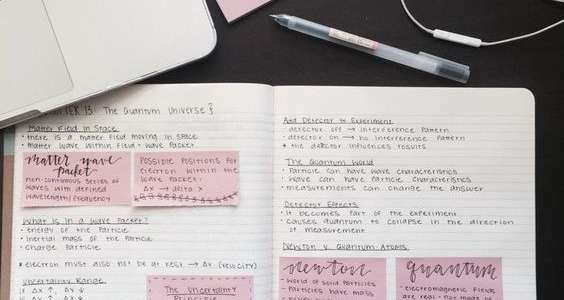 TER 13: The Quantum Universe }
Matter Field in Space
• there is a matter field moving in space
• matter wave within field - wave packet
matter wave
packet
non-continuous series of
waves with defined
wavelength/frequency
Possible positions for
electron within the
wave packet:
Δx → delta x
What is in a wave packet?
• energy of the particle
• inertial mass of the particle
• charge particle
* electron must also not be at rest → Δv (velocity)
Uncertainty Range
if Δx ↑, Δv ↓
if Δx ↓, Δv ↑
The Uncertainty
Principle
Add Detector to Experiment
• detector off → interference pattern
• detector on → no interference pattern
* the detector influences results
The Quantum World
• Particle can have wave characteristics
• wave can have particle characteristics
• measurements can change the answer
Detector Effects
• It becomes part of the experiment
• causes quantum to collapse in the direction
of measurement
Newton v. Quantum-Atoms
newton
• world of solid particles
• particles have mass
quantum
• electromagnetic fields
are real - not made